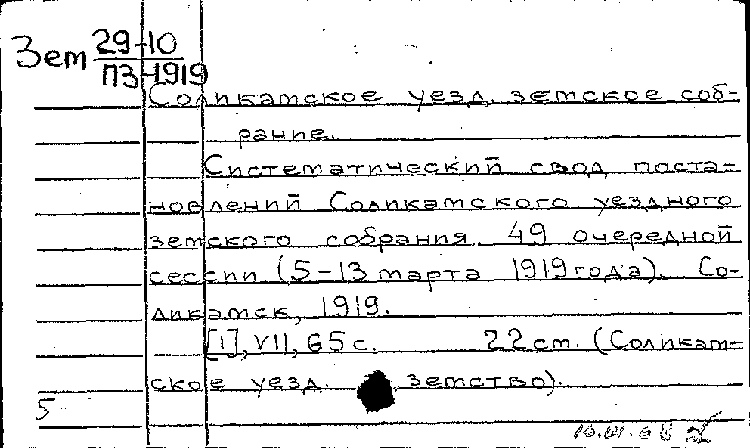 Зем 29-10
ПЗ-1919
Соликамское уезд. земское соб-
рание.
Систематический свод поста-
новлений Соликамского уездного
земского собрания 49 очередной
сессии (5-13 марта 1919 года). Со-
ликамск, 1919.
[1], VII, 65 с. 22 см. (Соликам-
ское уезд. земство).
5